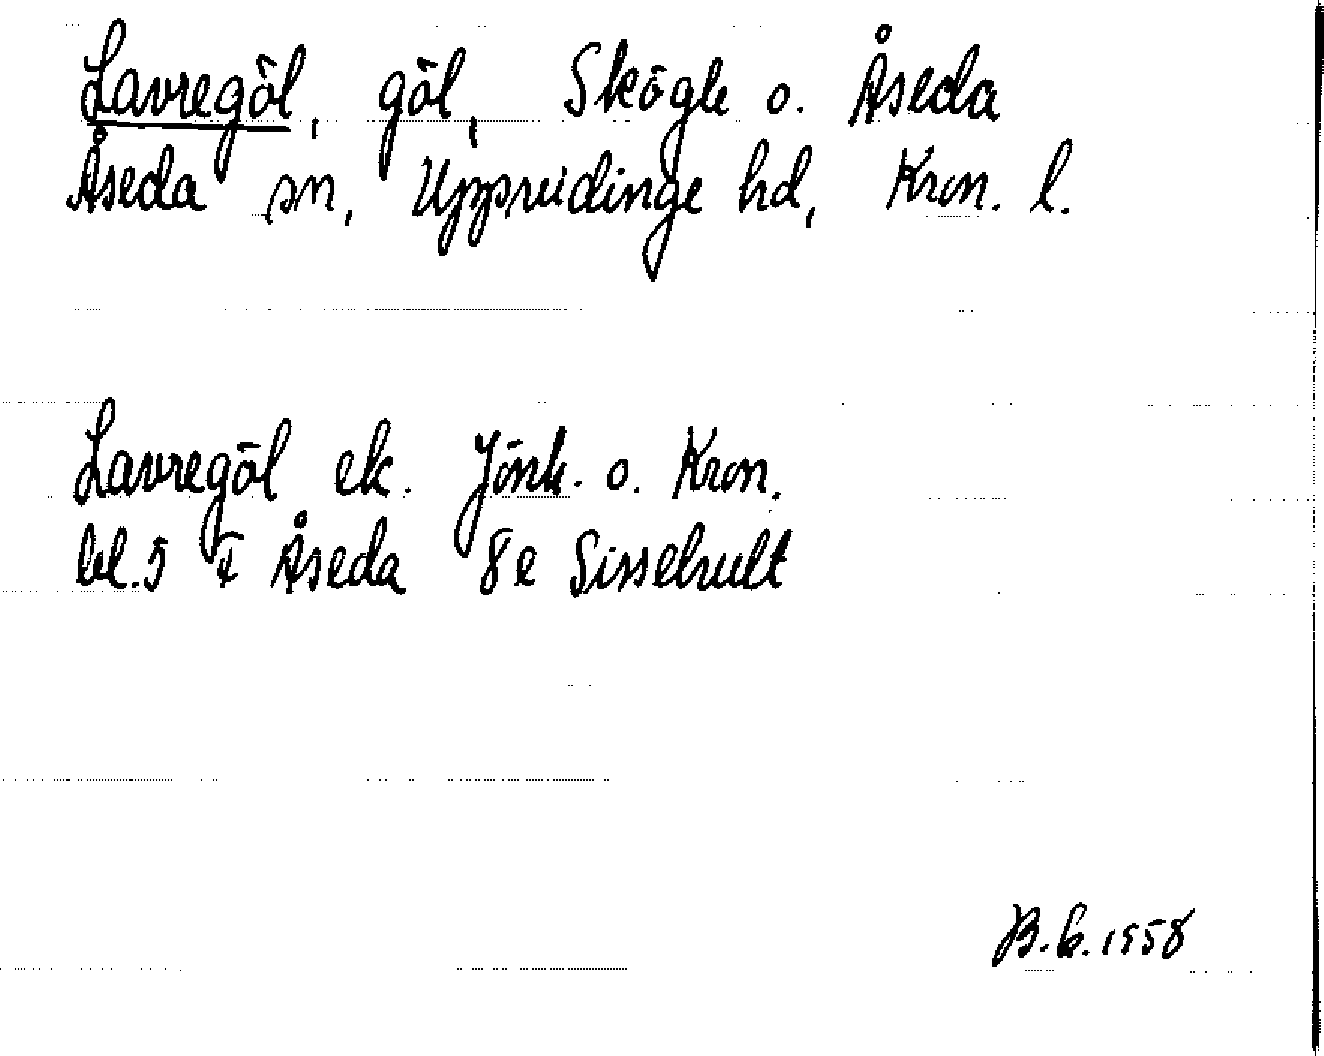 Lavregöl, göl, Skögle o. Åseda
Åseda sn, Uppvidinge hd, Kron. l.
Lavregöl ek. Jönk. o. Kron.
bl. 5 F Åseda 8e Sisselhult
1958